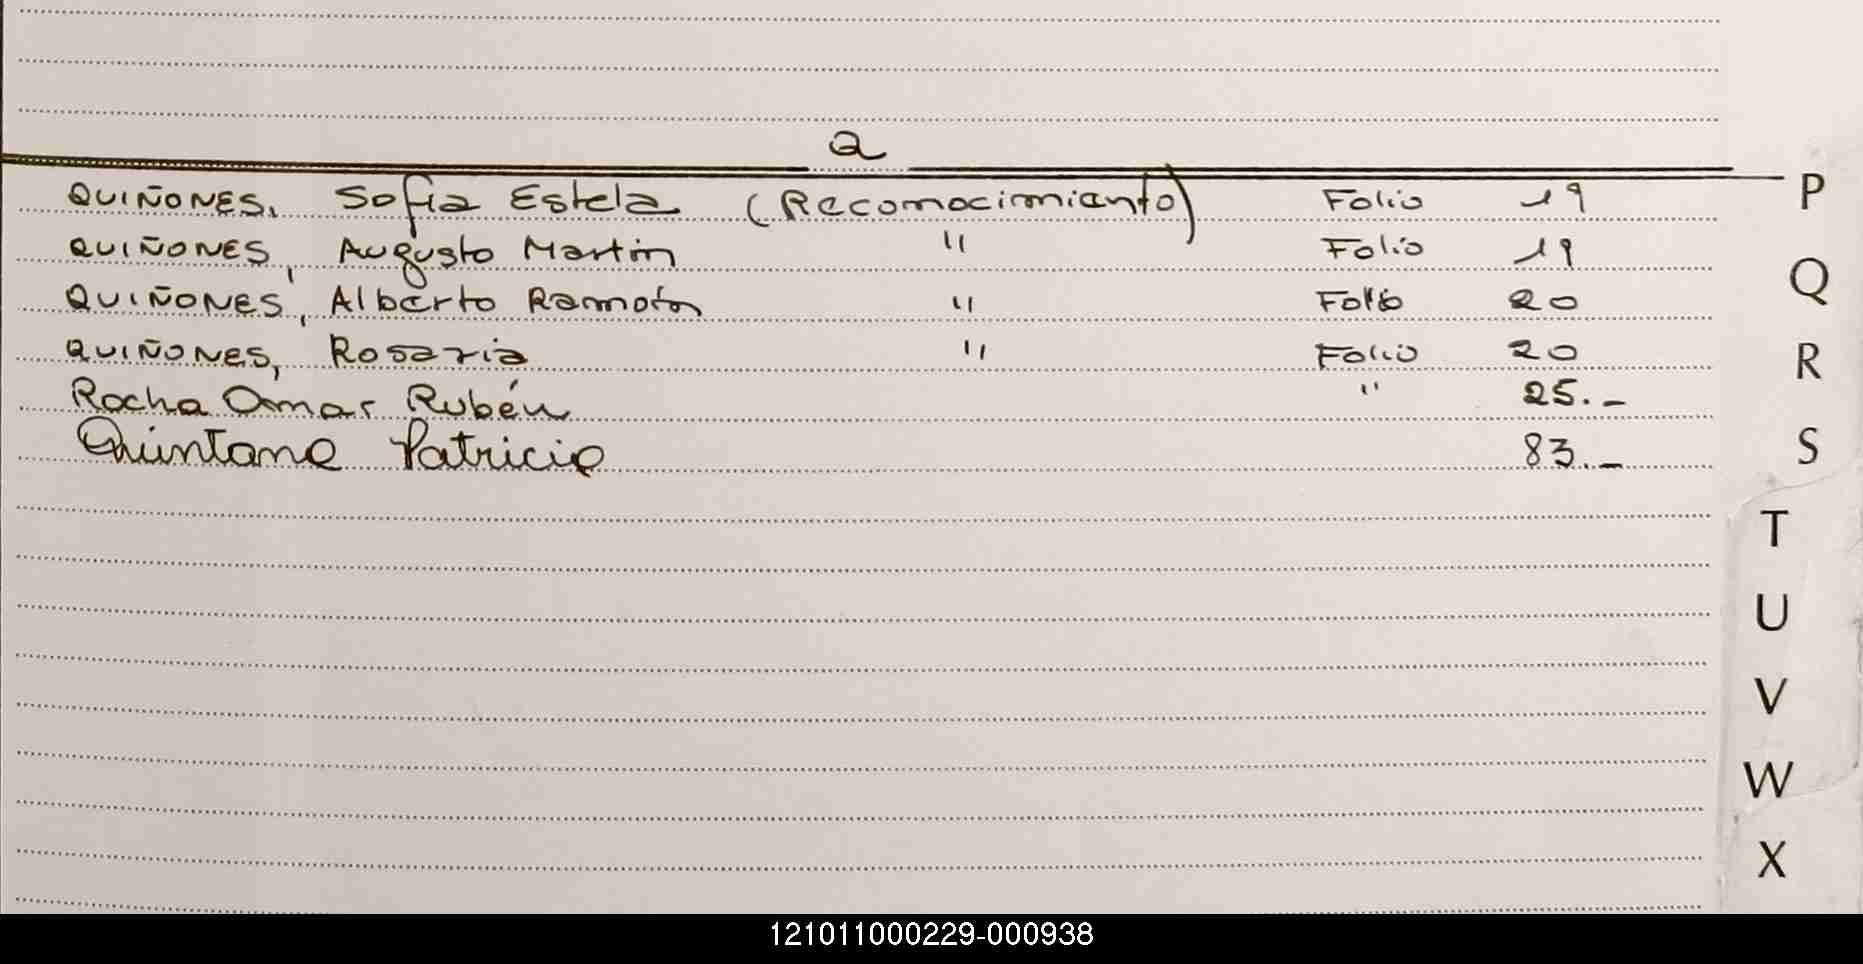 Q
QUIÑONES, Sofia Estela (Reconocimiento) Folio 19
QUIÑONES, Augusto Martin " Folio 19
QUIÑONES, Alberto Ramón " Folio 20
QUIÑONES, Rosaria " Folio 20
Rocha Omar Rubén " 25.-
Quintana Patricio 83.-
P
Q
R
S
T
U
V
W
X
121011000229-000938